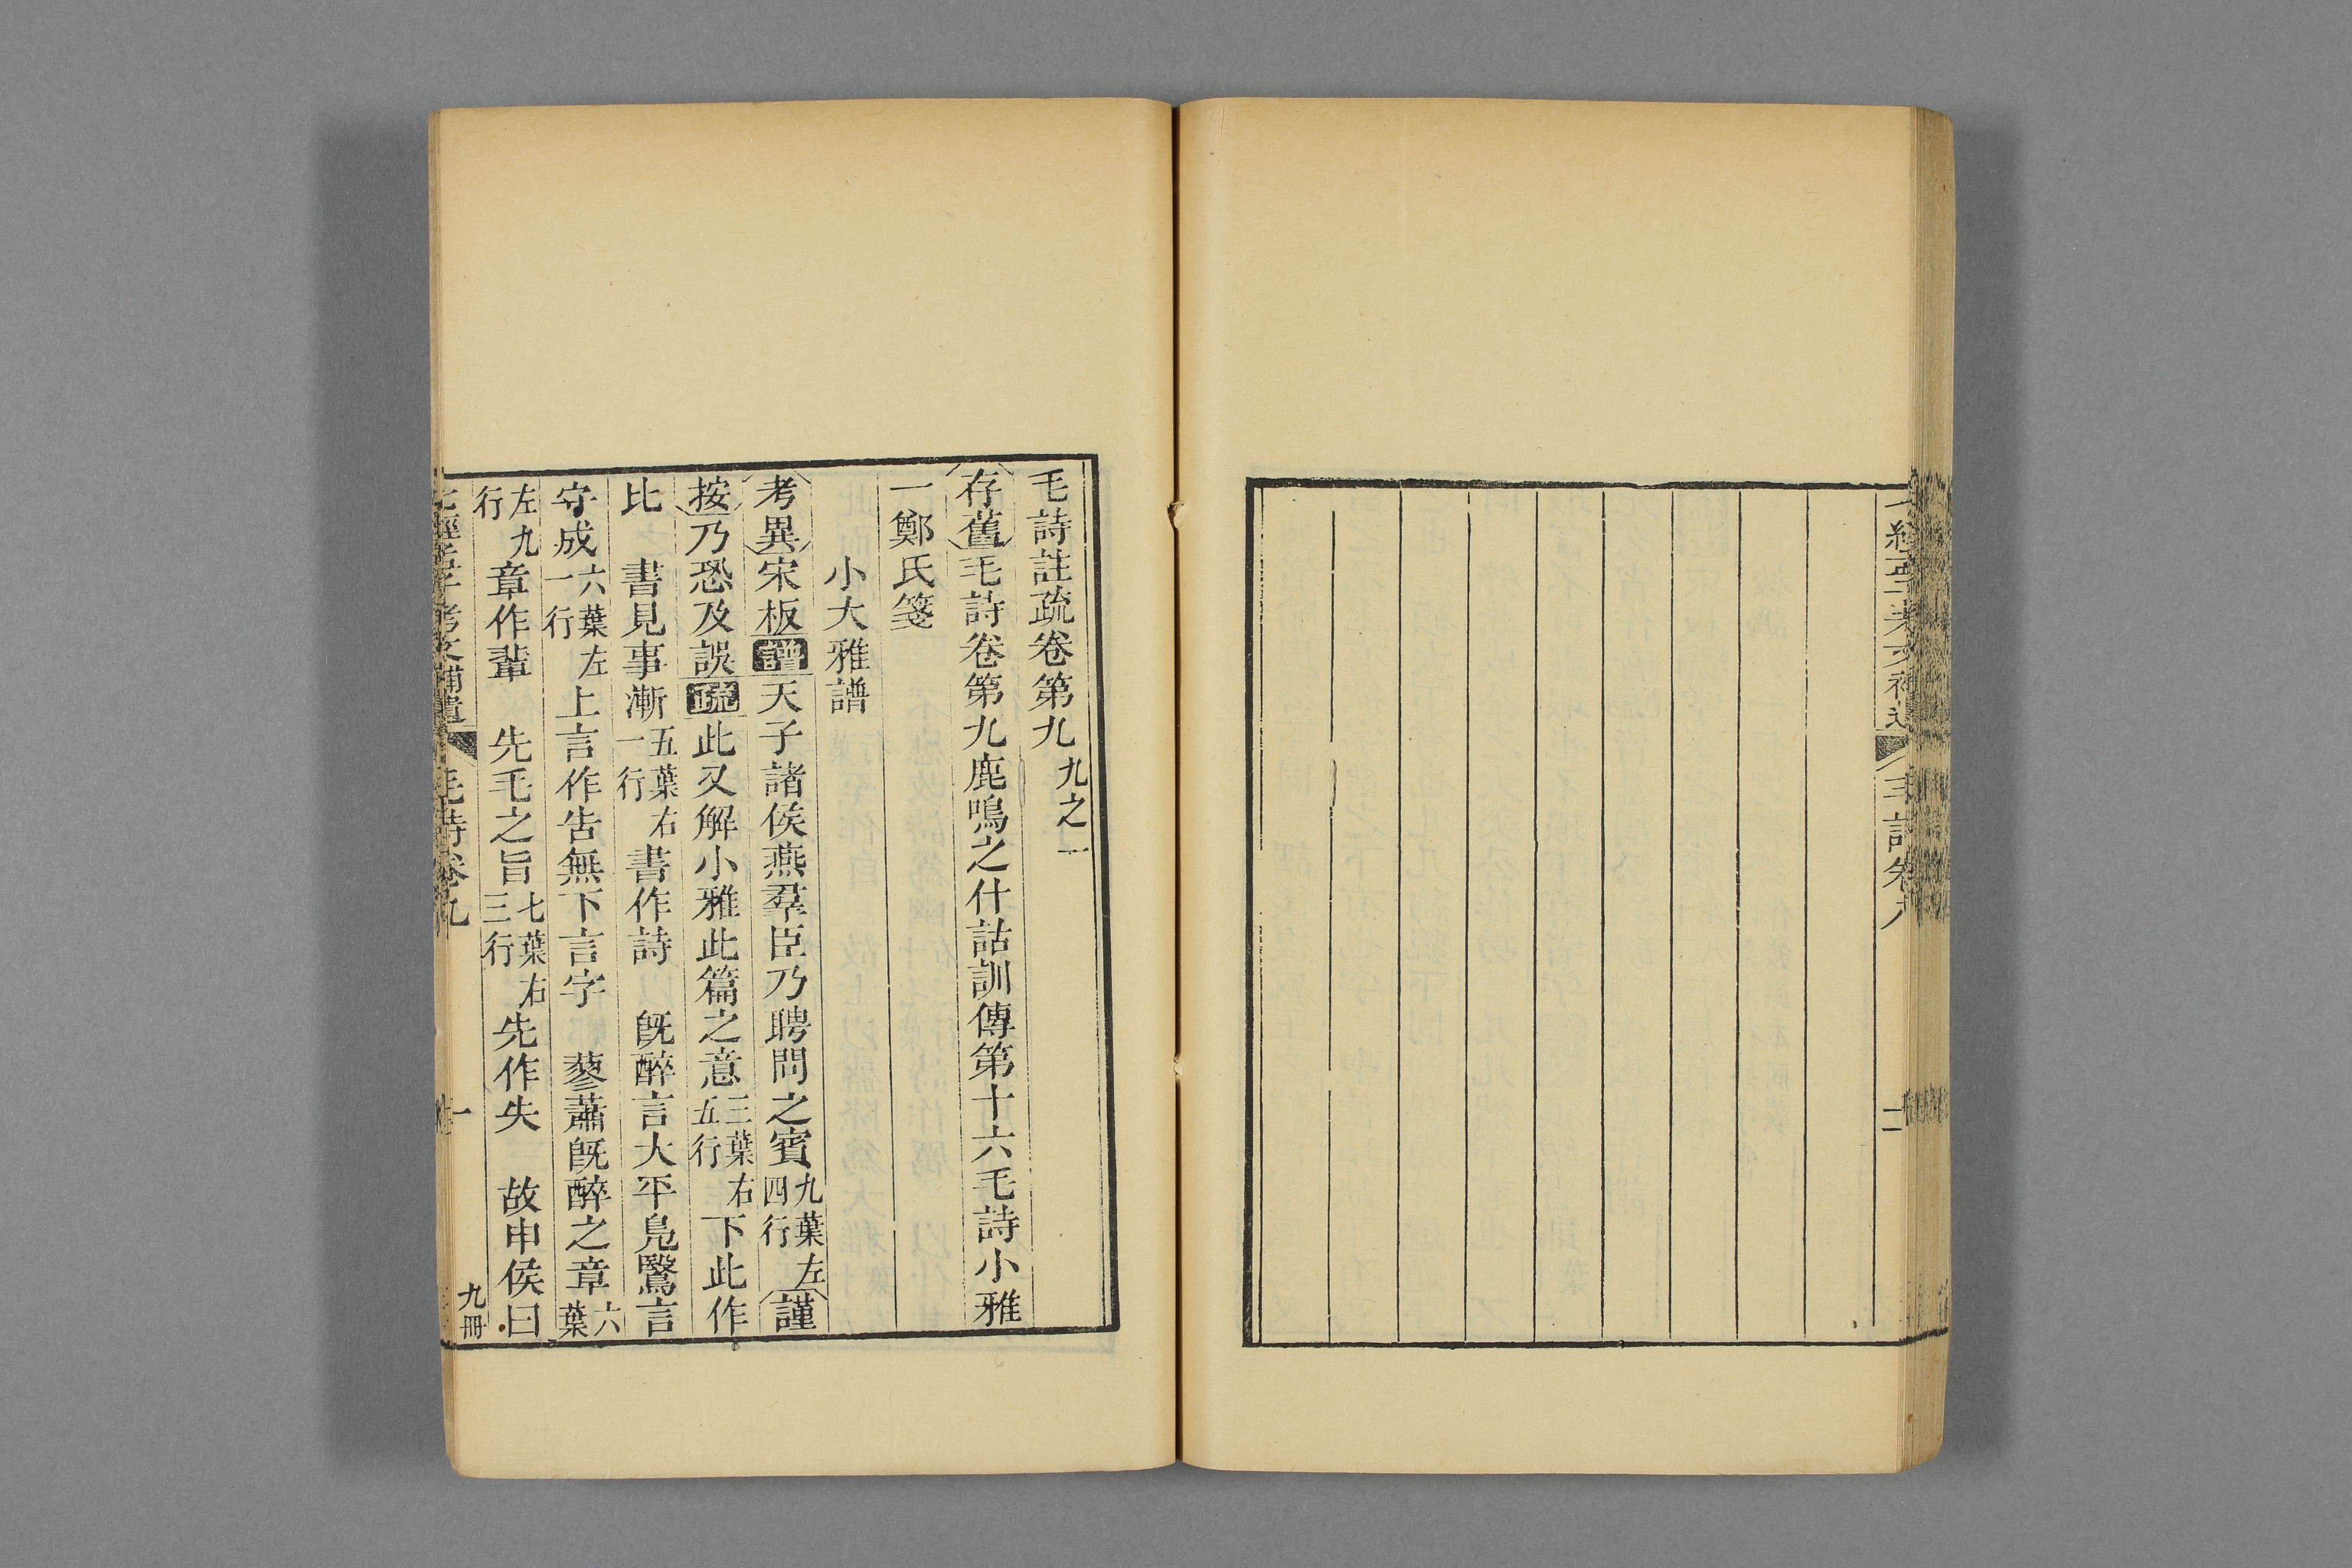 毛詩註疏卷第九 九之一
存舊毛詩卷第九鹿鳴之什詁訓傳第十六毛詩小雅
一鄭氏箋
小大雅譜
考異宋板譜天子諸侯燕羣臣乃聘問之賓九葉左四行謹
按乃恐及誤疏此又解小雅此篇之意三葉右五行下此作
比 書見事漸五葉右一行書作詩 既醉言大平鳧鷖言
守成六葉左一行上言作告無下言字 蓼蕭既醉之章六葉
左九行章作輩 先毛之旨七葉右三行先作失 故申侯曰
七經孟子考文補遺 毛詩卷九 一 九冊
毛詩卷八 二